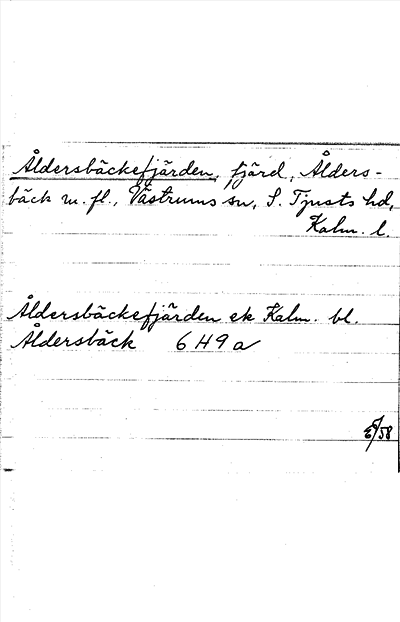 Åldersbäckefjärden, fjärd, Ålders-
bäck m. fl., Västrums sn, S. Tjusts hd,
Kalm. l.
Åldersbäckefjärden ek Kalm. bl.
Åldersbäck 6H9a
58